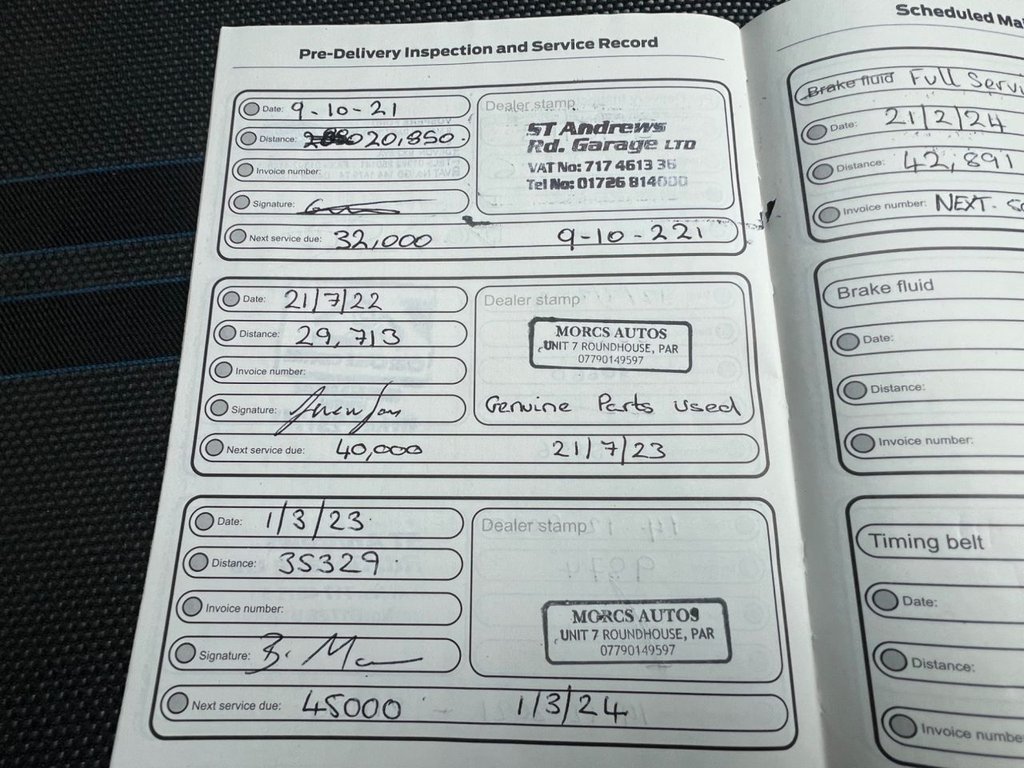 Pre-Delivery Inspection and Service Record
Date: 9-10-21
Distance: 20,850
Invoice number:
Signature:
Dealer stamp
ST Andrews
Rd. Garage LTD
VAT No: 717 4613 36
Tel No: 01726 814000
Next service due: 32,000 9-10-221
Date: 21/7/22
Distance: 29,713
Invoice number:
Signature:
Dealer stamp
MORCS AUTOS
UNIT 7 ROUNDHOUSE, PAR
07790149597
Genuine Parts used
Next service due: 40,000 21/7/23
Date: 1/3/23
Distance: 35329
Invoice number:
Signature:
Dealer stamp
MORCS AUTOS
UNIT 7 ROUNDHOUSE, PAR
07790149597
Next service due: 45000 1/3/24
Scheduled Ma
Brake fluid Full Servi
Date: 21/2/24
Distance: 42,891
Invoice number: NEXT-
Brake fluid
Date:
Distance:
Invoice number:
Timing belt
Date:
Distance:
Invoice numbe